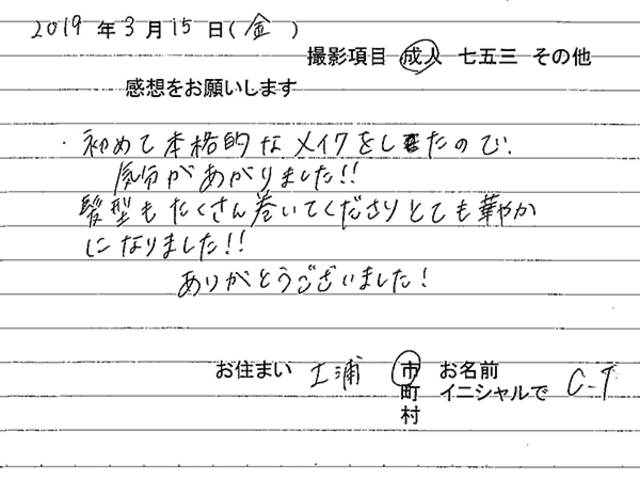 2019年3月15日(金)
撮影項目 成人 七五三 その他
感想をお願いします
・初めて本格的なメイクをしたので、
気分があがりました!!
髪型もたくさん巻いてくださりとても華やか
になりました!!
ありがとうございました!
お住まい 土浦 市 お名前
町 イニシャルで C-T
村